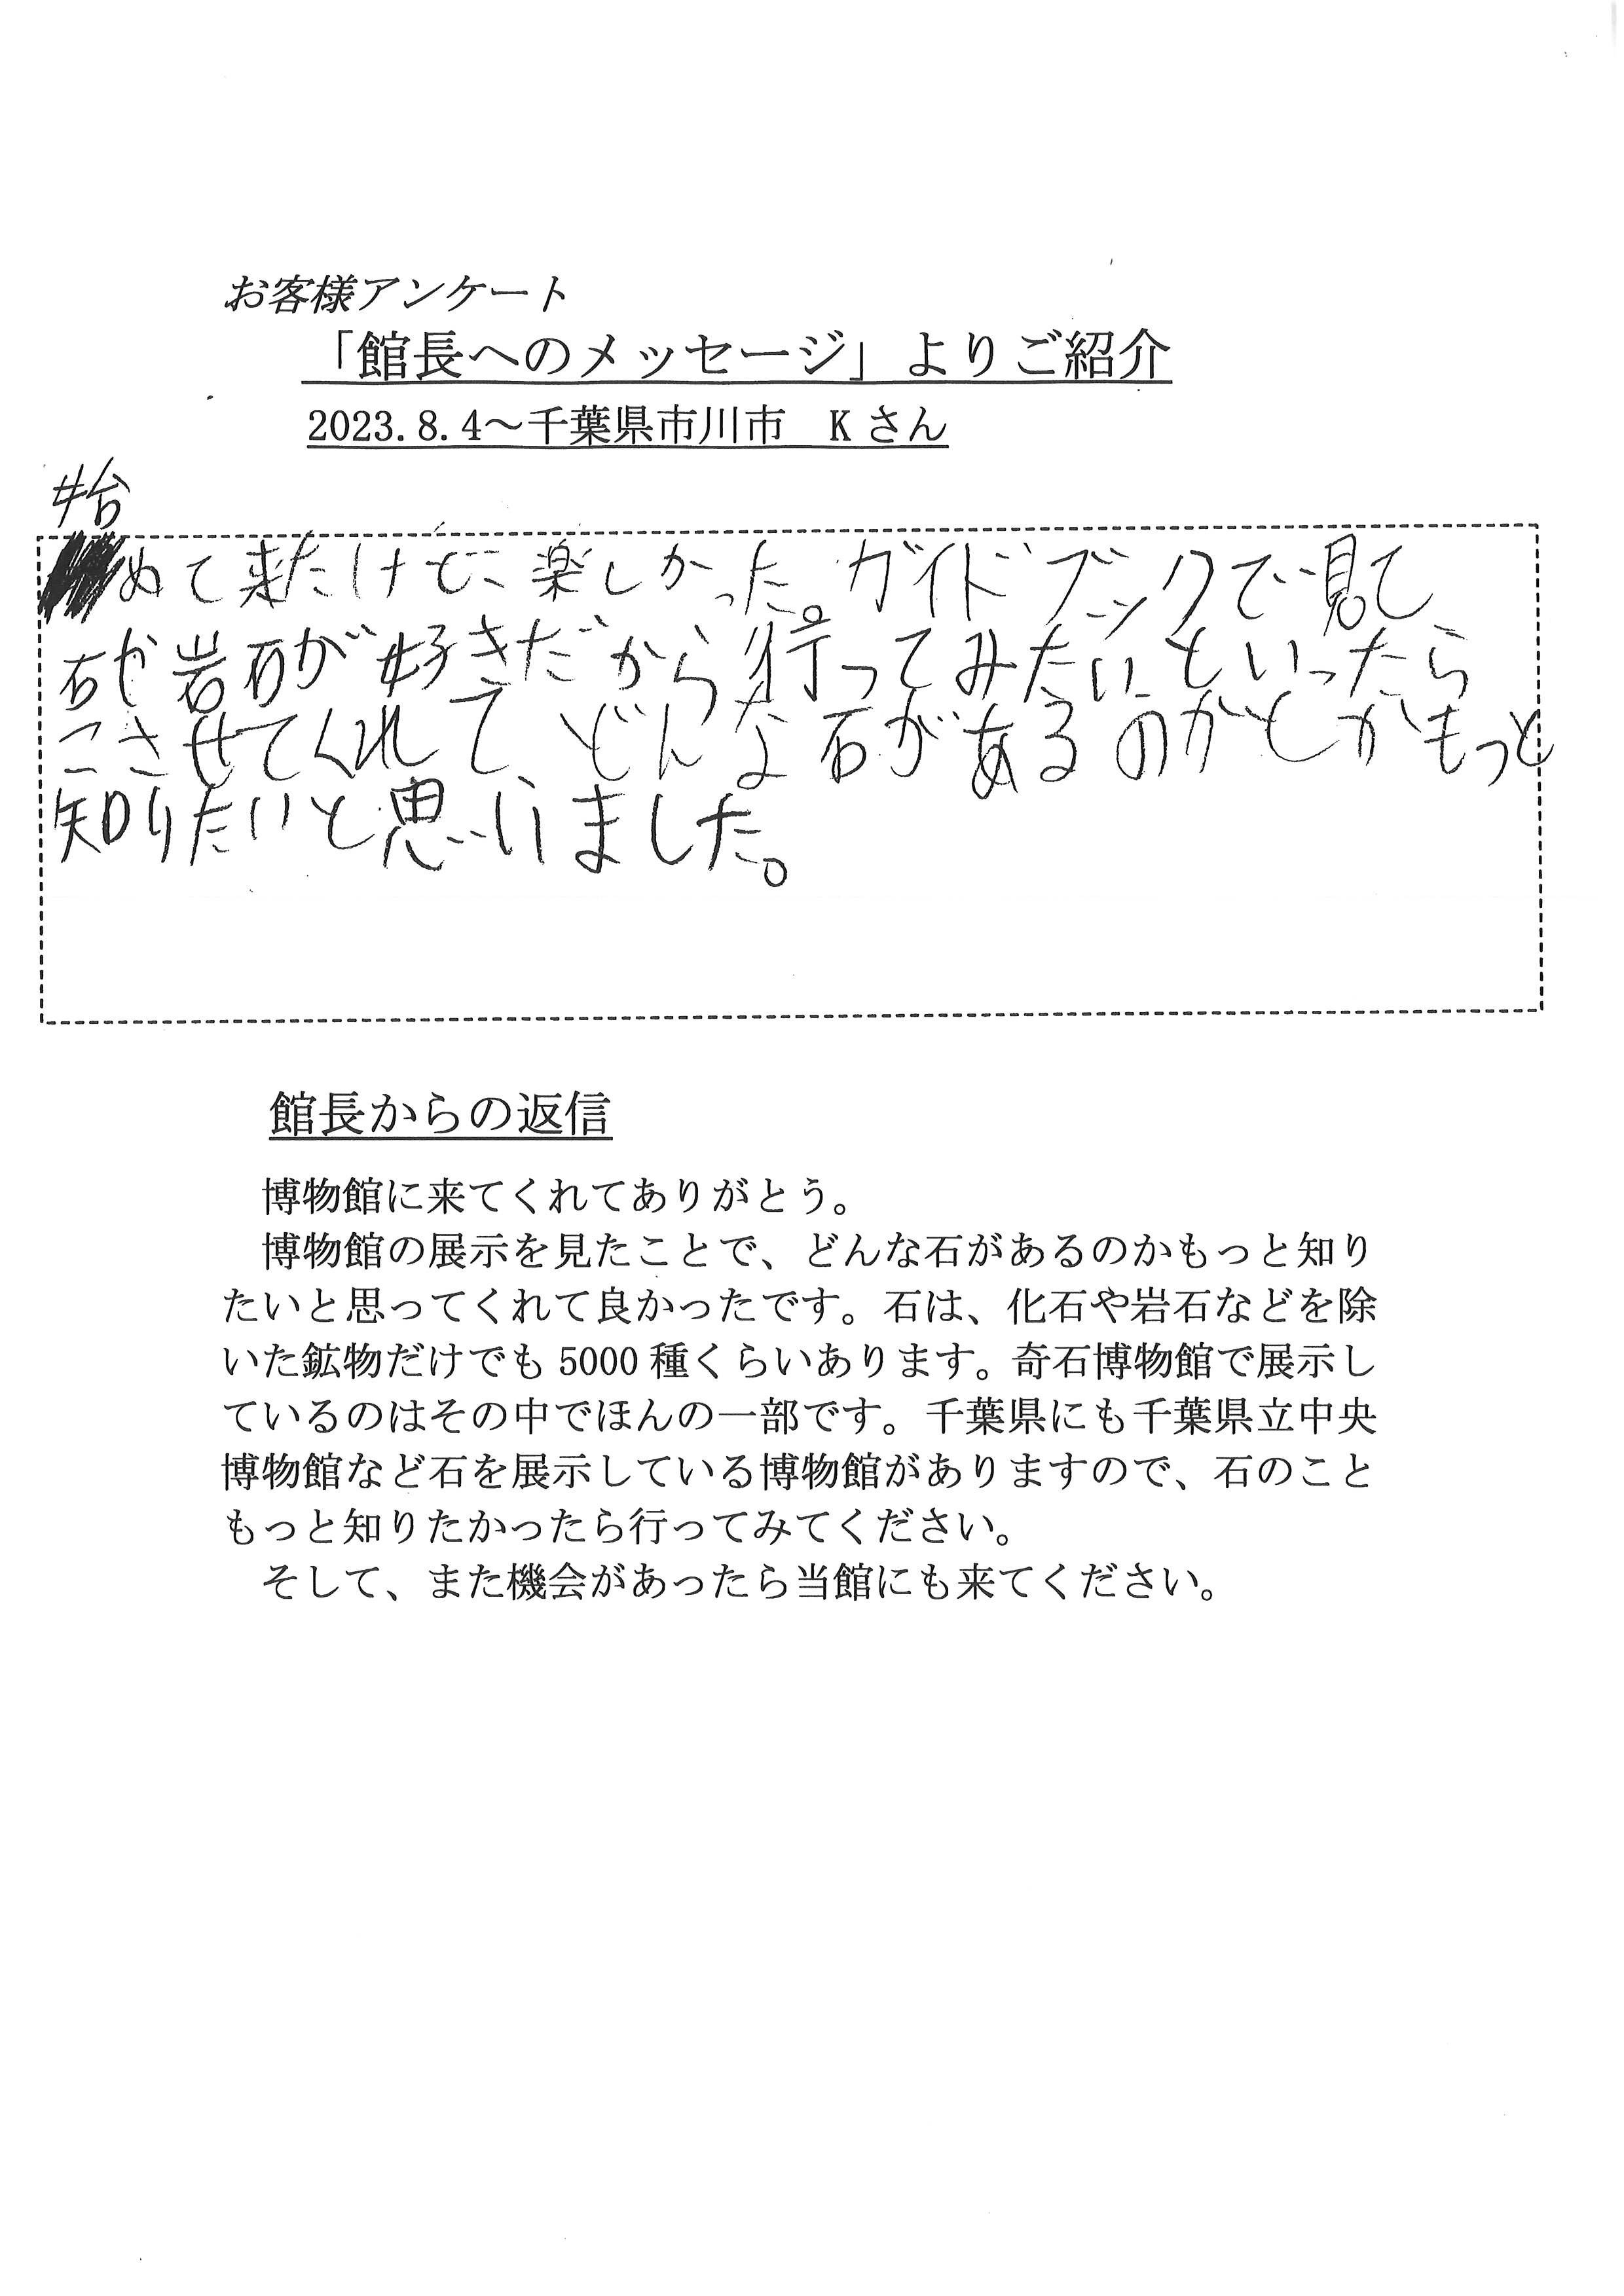 お客様アンケート
「館長へのメッセージ」よりご紹介
2023.8.4～千葉県市川市　Kさん
始
めて来たけどこ楽しかった。ガイドブックで見て、
石や岩石が好きだから行ってみたいといったら
こさせてくれて、どんな石があるのかとかもっと
知りたいと思いました。
館長からの返信
博物館に来てくれてありがとう。
博物館の展示を見たことで、どんな石があるのかもっと知り
たいと思ってくれて良かったです。石は、化石や岩石などを除
いた鉱物だけでも5000種くらいあります。奇石博物館で展示し
ているのはその中でほんの一部です。千葉県にも千葉県立中央
博物館など石を展示している博物館がありますので、石のこと
もっと知りたかったら行ってみてください。
そして、また機会があったら当館にも来てください。